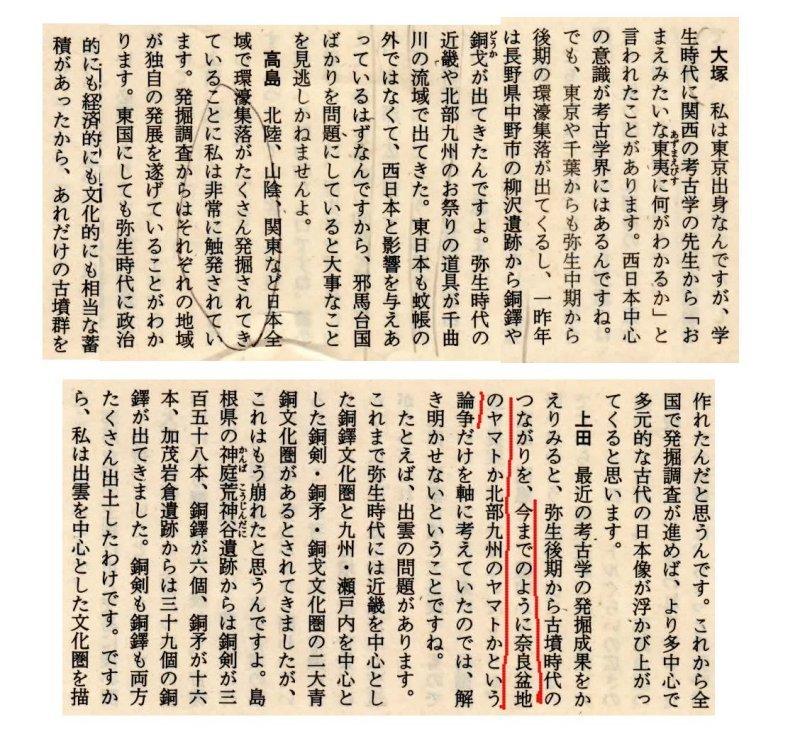 大塚　私は東京出身なんですが、学
生時代に関西の考古学の先生から「お
まえみたいな東夷に何がわかるか」と
言われたことがあります。西日本中心
の意識が考古学界にはあるんですね。
でも、東京や千葉からも弥生中期から
後期の環濠集落が出てくるし、一昨年
は長野県中野市の柳沢遺跡から銅鐸や
銅戈が出てきたんですよ。弥生時代の
近畿や北部九州のお祭りの道具が千曲
川の流域で出てきた。東日本も蚊帳の
外ではなくて、西日本と影響を与えあ
っているはずなんですから、邪馬台国
ばかりを問題にしていると大事なこと
を見逃しかねませんよ。
高島　北陸、山陰、関東など日本全
域で環濠集落がたくさん発掘されてき
ていることに私は非常に触発されてい
ます。発掘調査からはそれぞれの地域
が独自の発展を遂げていることがわか
ります。東国にしても弥生時代に政治
的にも経済的にも文化的にも相当な蓄
積があったから、あれだけの古墳群を
作れたんだと思うんです。これから全
国で発掘調査が進めば、より多中心で
多元的な古代の日本像が浮かび上がっ
てくると思います。
上田　最近の考古学の発掘成果をか
えりみると、弥生後期から古墳時代の
つながりを、今までのように奈良盆地
のヤマトか北部九州のヤマトかという
論争だけを軸に考えていたのでは、解
き明かせないということですね。
たとえば、出雲の問題があります。
これまで弥生時代には近畿を中心とし
た銅鐸文化圏と九州・瀬戸内を中心と
した銅剣・銅矛・銅戈文化圏の二大青
銅文化圏があるとされてきましたが、
これはもう崩れたと思うんですよ。島
根県の神庭荒神谷遺跡からは銅剣が三
百五十八本、銅鐸が六個、銅矛が十六
本、加茂岩倉遺跡からは三十九個の銅
鐸が出てきました。銅剣も銅鐸も両方
たくさん出土したわけです。ですか
ら、私は出雲を中心とした文化圏を描